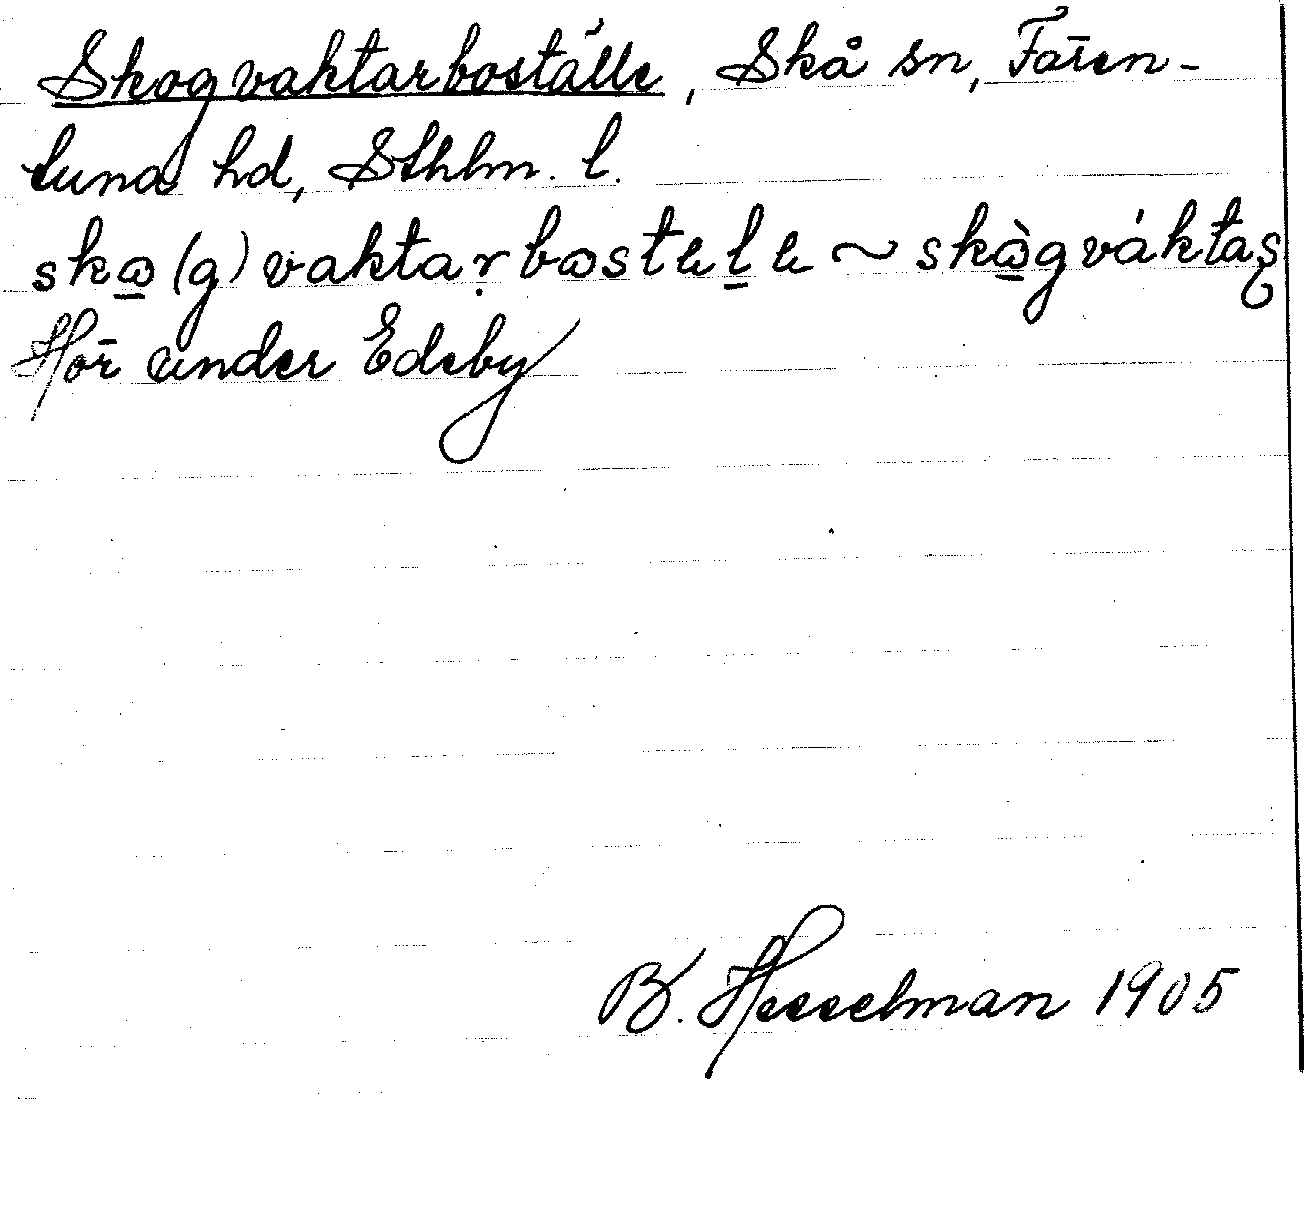 Skogvaktarboställe, Skå sn, Fären-
tuna hd, Sthlm. l.
skɷ(g)vaktaṛbɷstɛlɛ ~ skɷ̀gváktaʂ
Hör under Edeby
B. Hesselman 1905